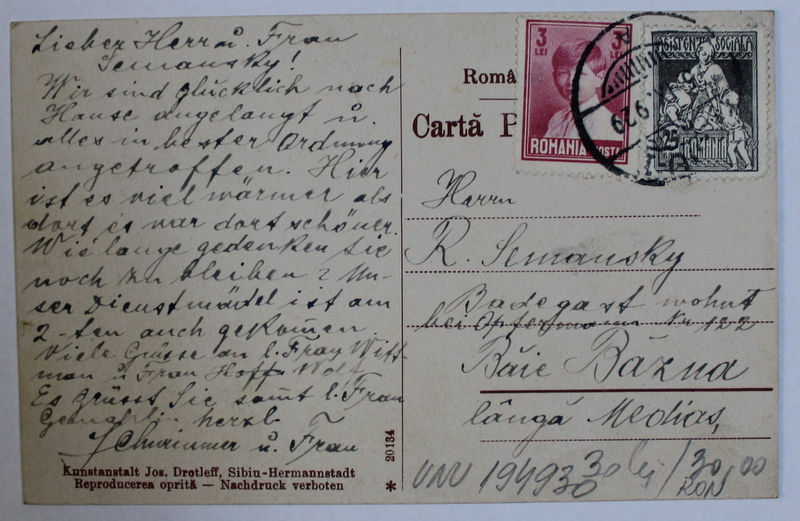 Lieber Herr u. Frau
Semansky!
Wir sind glücklich nach
Hause angelangt u.
alles in bester Ordnung
angetroffen. Hier
ist es viel wärmer als
dort es war dort schöner.
Wie lange gedenken Sie
noch zu bleiben? Un-
ser Dienstmädel ist am
2-ten auch gekommen.
Viele Grüsse an l. Frau Witt-
man u. Frau Hoff Wolf
Es grüsst Sie samt l. Frau
Gemahlin herzl.
u. Frau
Kunstanstalt Jos. Drotleff, Sibiu-Hermannstadt
Reproducerea oprită — Nachdruck verboten
* 20134
Româ
Carta P
3 LEI 3 LEI
ROMANIA POSTA
ASISTENȚA SOCIALA
25
Herrn
R. Semansky
Badegast wohnt
bei Nr 122
Băie Băzna
lângă Medias,
UNU 194930 30 lei / 30,00
RON